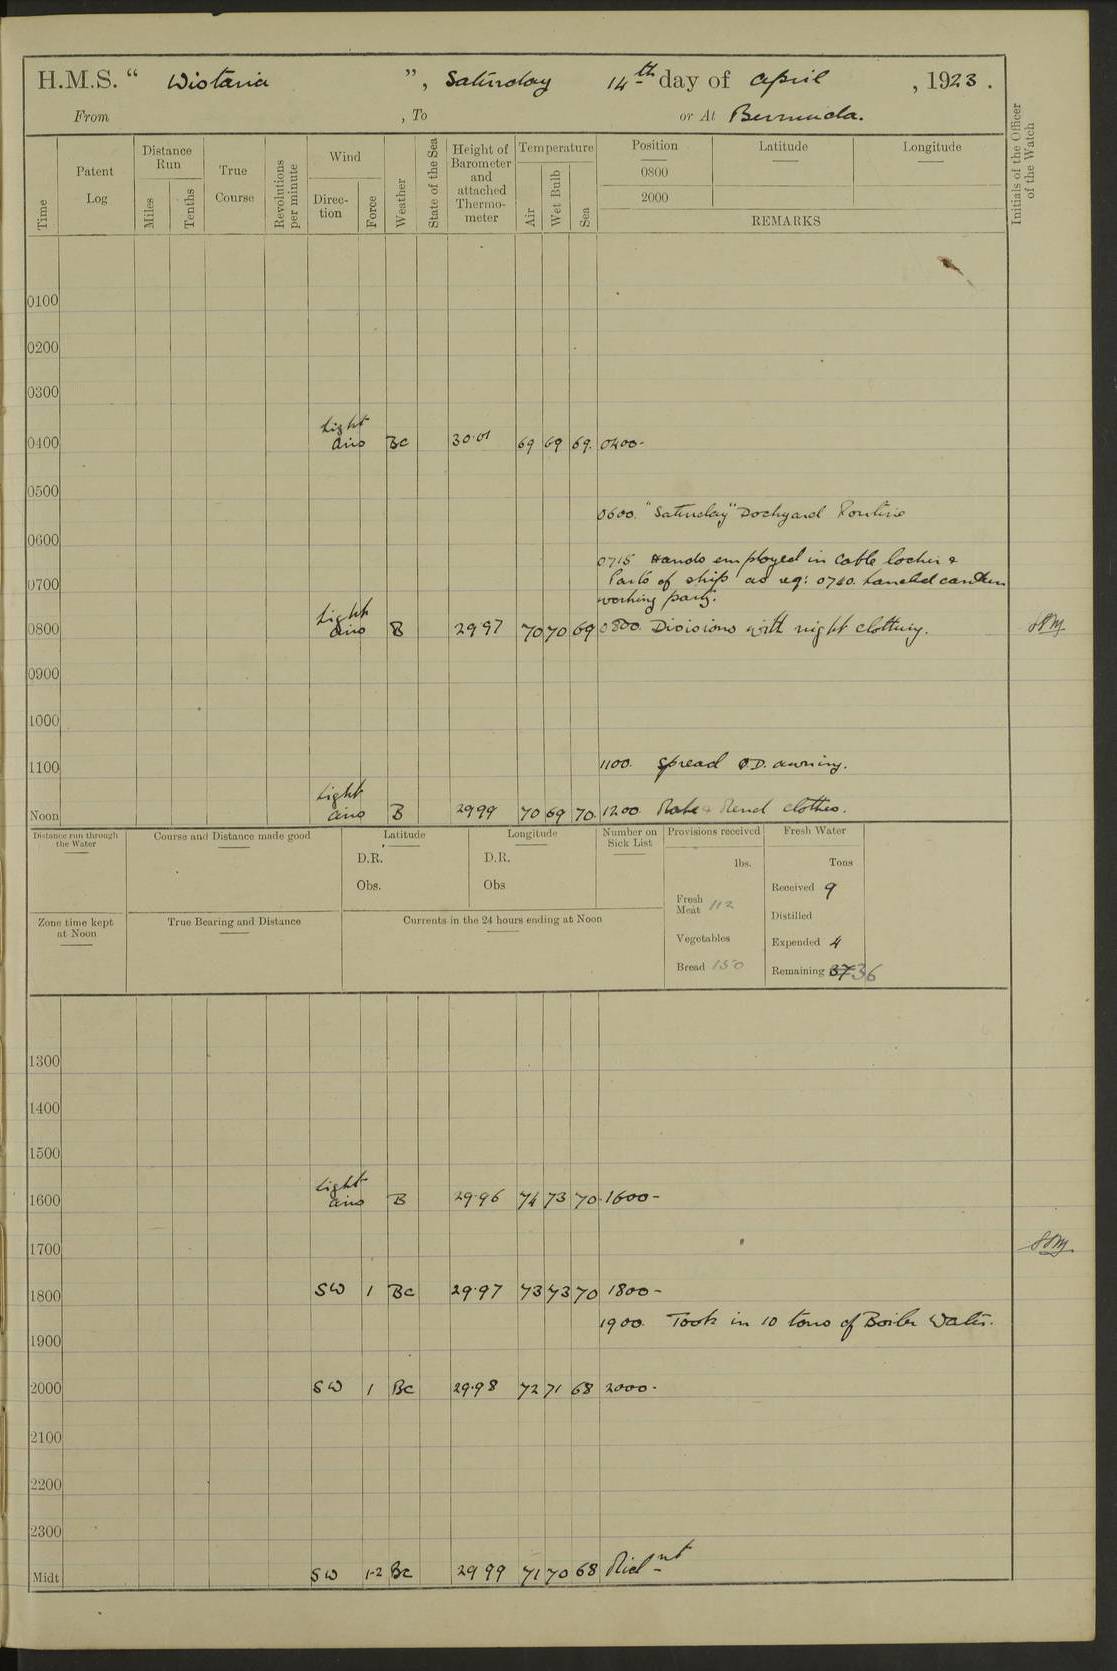 H.M.S. “ Wistaria ”, Saturday 14th day of April , 1923.
From , To or At Bermuda.
Time
Patent Log
Distance Run
Miles
Tenths
True Course
Revolutions per minute
Wind
Direction
Force
Weather
State of the Sea
Height of Barometer and attached Thermometer
Temperature
Air
Wet Bulb
Sea
Position
0800
2000
Latitude
Longitude
REMARKS
Initials of the Officer of the Watch
0100
0200
0300
Light
0400 airs Bc 30.01 69 69 69. 0400-
0500
0600. "Saturday" Dockyard Routine
0600
0715 Hands employed in cable locker &
0700 Parts of ship as req: 0740. Landed canteen
working party.
Light
0800 airs B 29 97 70 70 69 0800. Divisions with night clothing.
0900
1000
1100 1100. Spread Q.D. awning.
Light
Noon airs B 29 99 70 69 70. 1200 Make & Mend clothes.
Distance run through the Water
Course and Distance made good
Latitude
D.R.
Obs.
Longitude
D.R.
Obs
Number on Sick List
Provisions received
lbs.
Fresh Meat 112
Vegetables
Bread 150
Fresh Water
Tons
Received 9
Distilled
Expended 4
Remaining 37 36
Zone time kept at Noon
True Bearing and Distance
Currents in the 24 hours ending at Noon
1300
1400
1500
Light
1600 airs B 29.96 74 73 70. 1600-
1700
1800 SW 1 Bc 29.97 73 73 70 1800-
1900. Took in 10 tons of Boiler Water.
1900
2000 SW 1 Bc 29.98 72 71 68 2000.
2100
2200
2300
Midt SW 1-2 Bc 29 99 71 70 68 Midnt